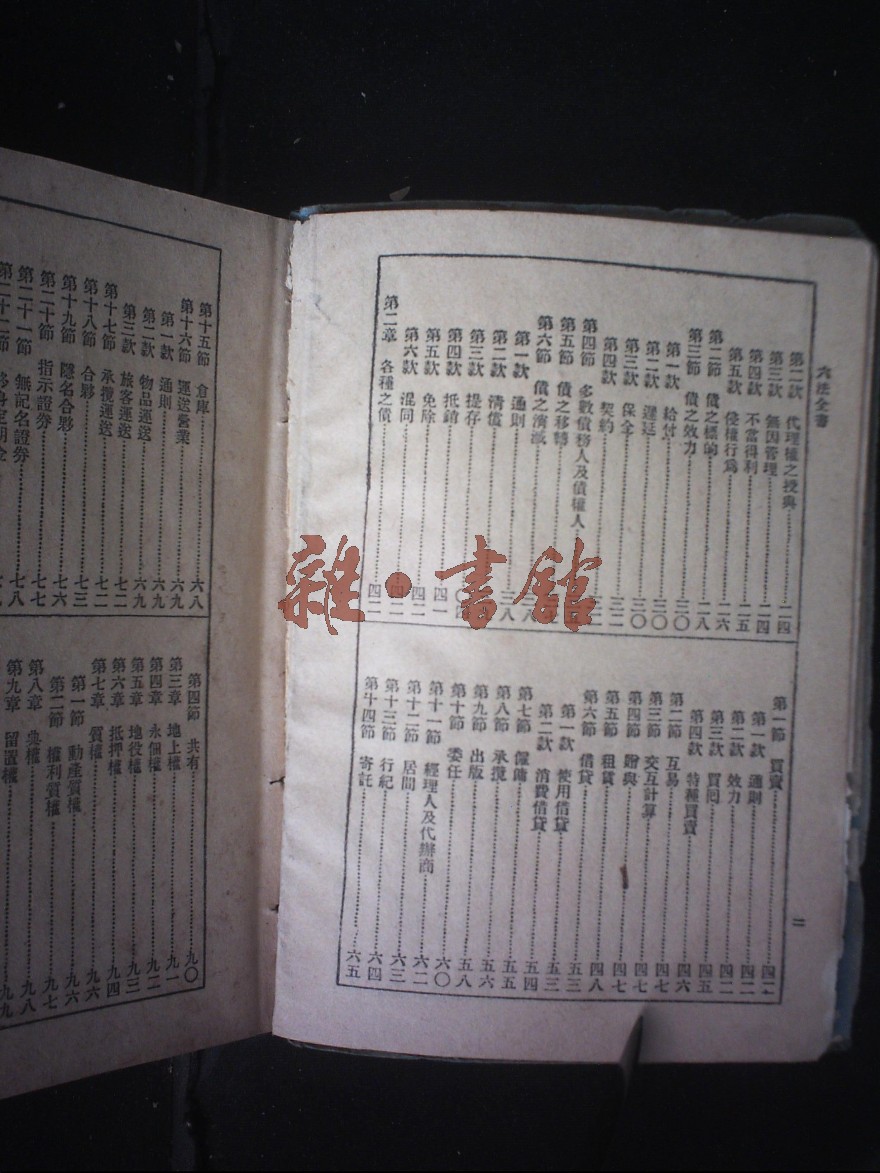 六法全書
第二款 代理權之授與 二四
第三款 無因管理 二四
第四款 不當得利 二五
第五款 侵權行爲 二六
第二節 債之標的 二八
第三節 債之效力 三〇
第一款 給付 三〇
第二款 遲延 三〇
第三款 保全
第四款 契約
第四節 多數債務人及債權人
第五節 債之移轉
第六節 債之消滅
第一款 通則
第二款 清償 三八
第三款 提存
第四款 抵銷
第五款 免除 四一
第六款 混同 四二
第二章 各種之債 四二
第一節 買賣 四二
第一款 通則 四二
第二款 效力 四二
第三款 買回 四五
第四款 特種買賣 四六
第二節 互易 四七
第三節 交互計算 四七
第四節 贈與 四七
第五節 租賃 四八
第六節 借貸 五三
第一款 使用借貸 五三
第二款 消費借貸 五四
第七節 僱傭 五五
第八節 承攬 五六
第九節 出版 五八
第十節 委任 六〇
第十一節 經理人及代辦商 六二
第十二節 居間 六三
第十三節 行紀 六四
第十四節 寄託 六五
二
第十五節 倉庫 六八
第十六節 運送營業 六九
第一款 通則 六九
第二款 物品運送 六九
第三款 旅客運送 七二
第十七節 承攬運送 七二
第十八節 合夥 七三
第十九節 隱名合夥 七六
第二十節 指示證券 七七
第二十一節 無記名證券 七八
第二十二節 終身定期金
第四節 共有 九〇
第三章 地上權 九一
第四章 永佃權 九二
第五章 地役權 九三
第六章 抵押權 九四
第七章 質權 九六
第一節 動產質權 九六
第二節 權利質權 九七
第八章 典權 九八
第九章 留置權 九九
雜·書館